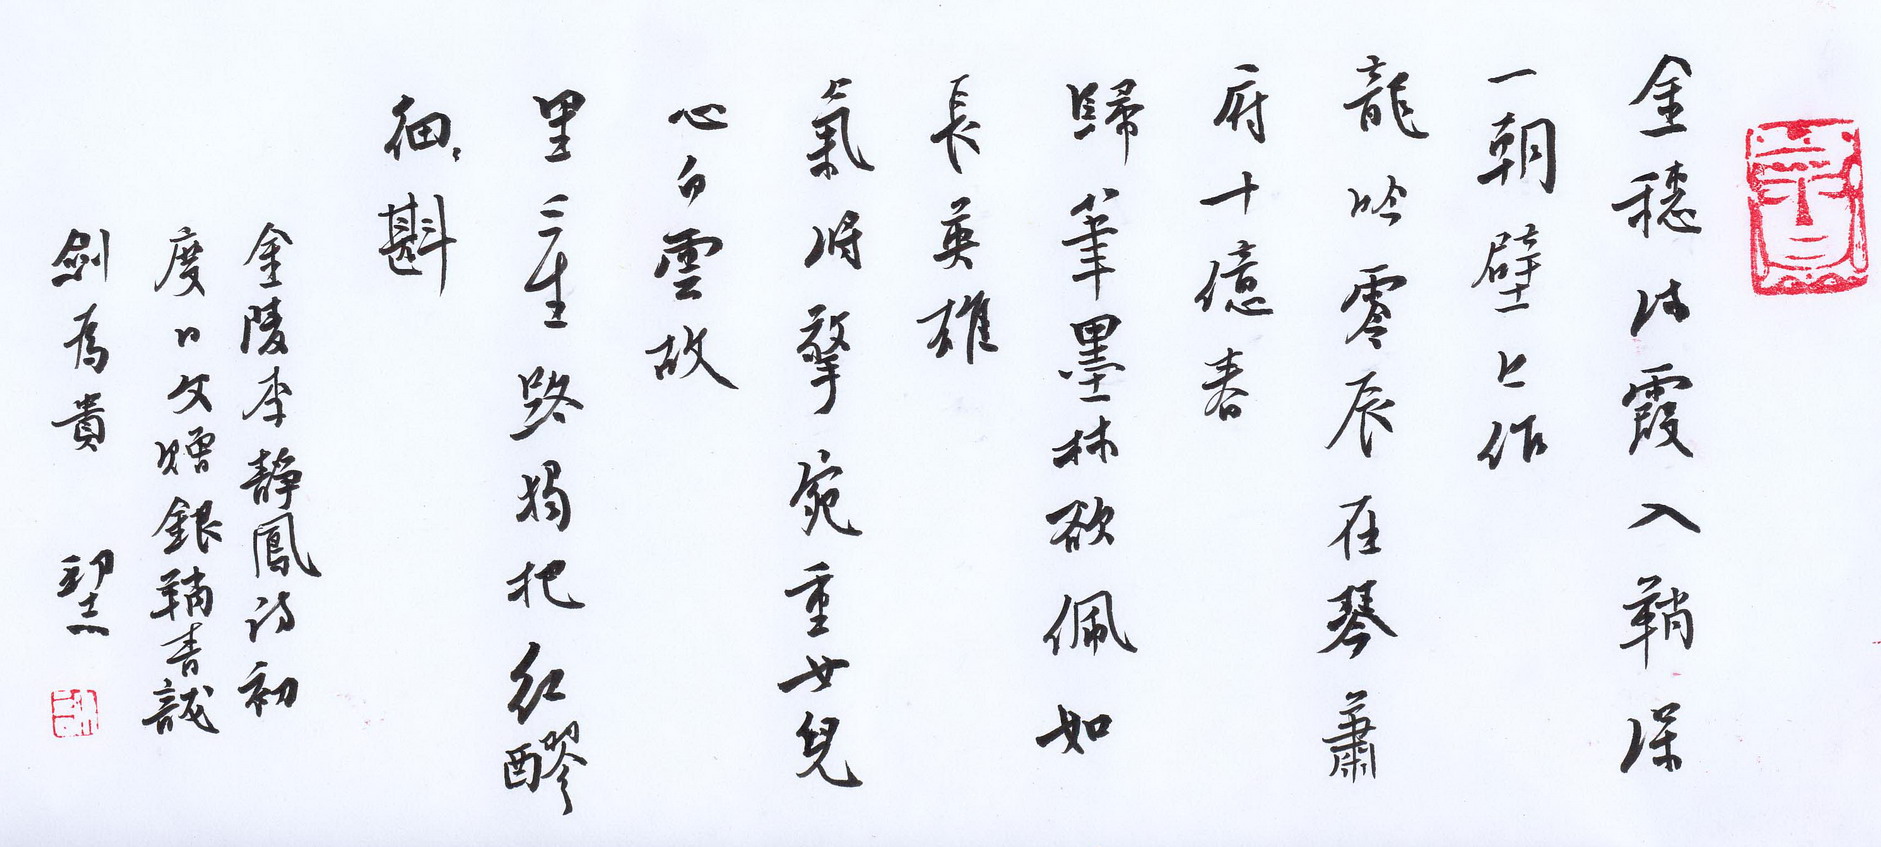 金穗沐霞入鞘深
一朝壁上作
龍吟零辰在琴蕭
府十億春
歸筆墨林欲佩如
長英雄
氣將擎宛重女兒
心白雲故
里三生路獨把紅醪
細〻斟
金陵李靜鳳詩初
度日文贈銀鞘青
劍為貴